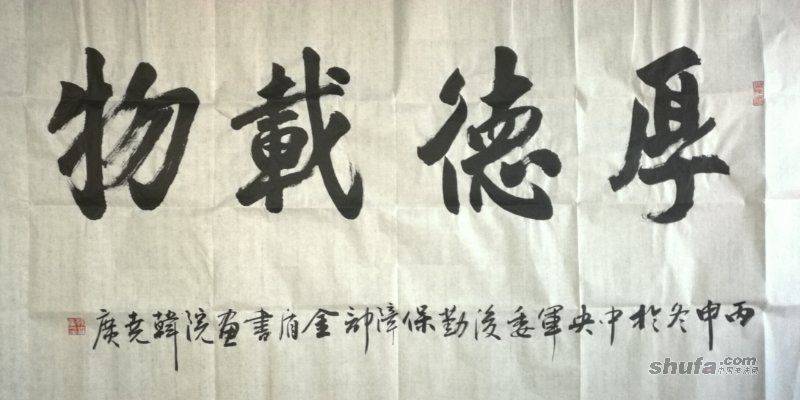 厚德載物
丙申冬於中央軍委後勤保障部金盾書畫院韓堯廣
shufa.com